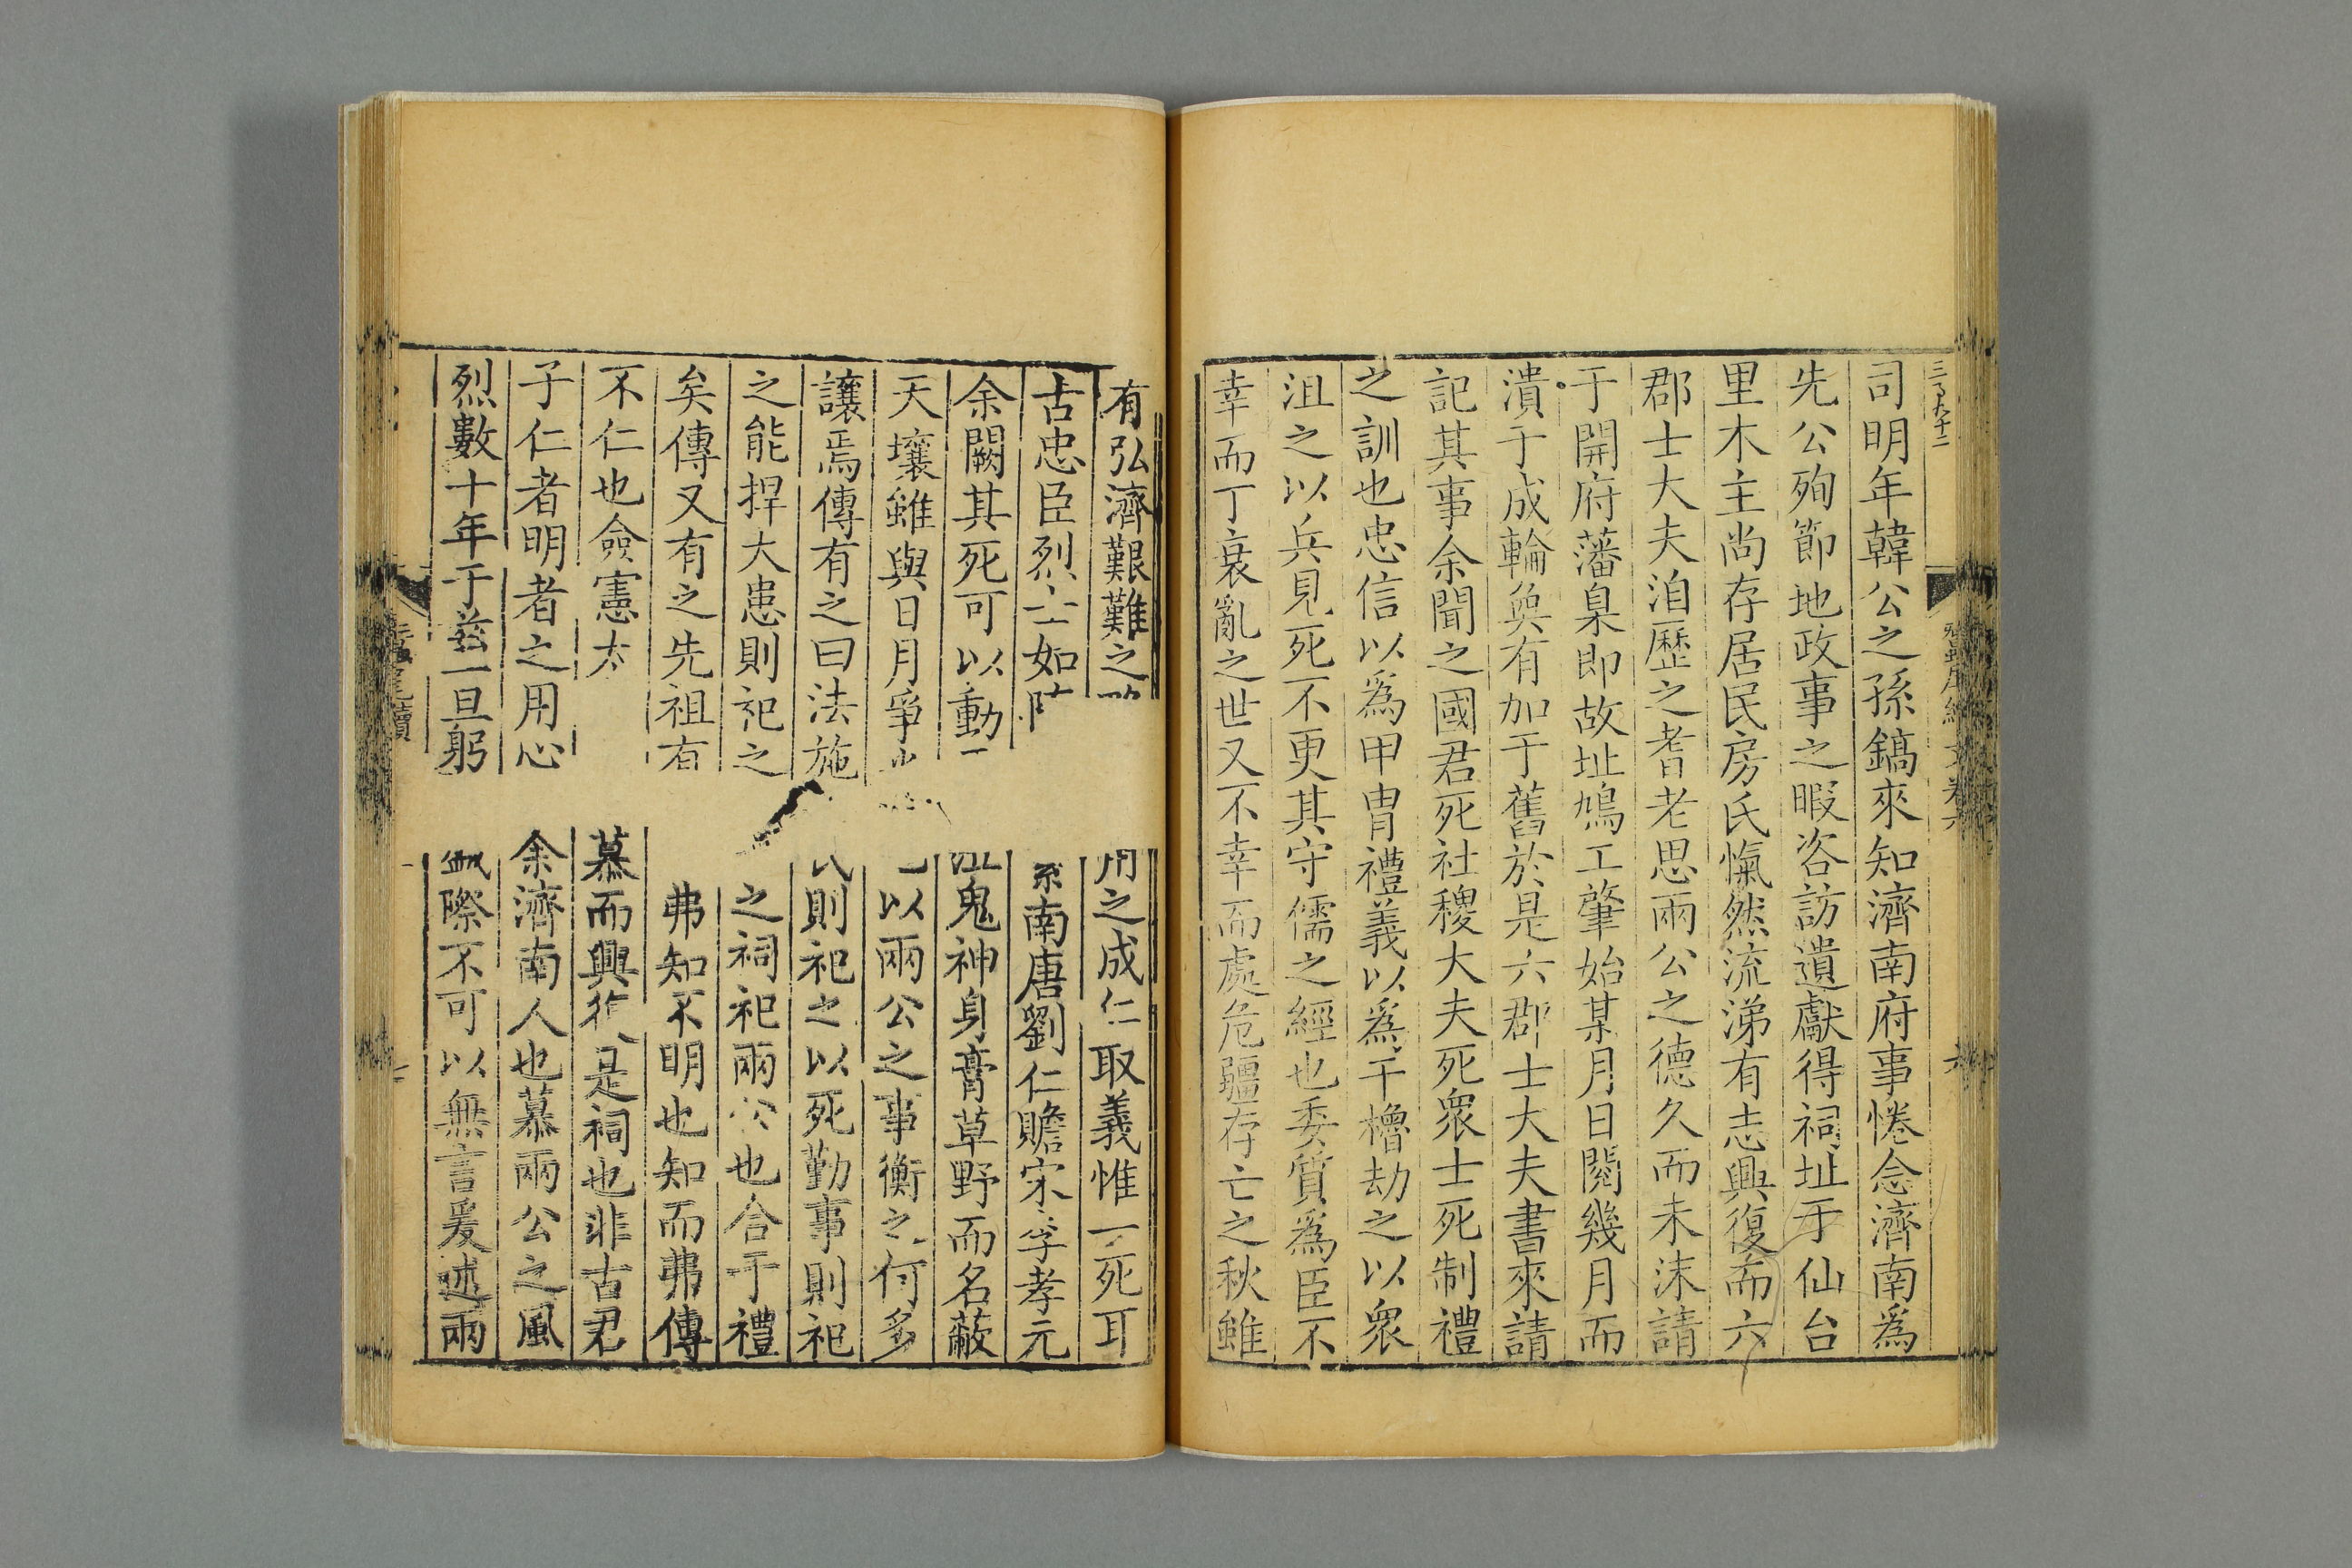 司明年韓公之孫鎬來知濟南府事惓念濟南爲
先公殉節地政事之暇咨訪遺獻得祠址于仙台
里木主尚存居民房氏愾然流涕有志興復而六
郡士大夫洎歷之耆老思兩公之德久而未沫請
于開府藩臬即故址鳩工肇始某月日閱幾月而
潰于成輪奐有加于舊於是六郡士大夫書來請
記其事余聞之國君死社稷大夫死衆士死制禮
之訓也忠信以爲甲冑禮義以爲干櫓劫之以衆
沮之以兵見死不更其守儒之經也委質爲臣不
幸而丁衰亂之世又不幸而處危疆存亡之秋雖
有弘濟艱難之 用之成仁取義惟一死耳
古忠臣烈士如 南唐劉仁贍宋李孝元
余闕其死可以動 鬼神身膏草野而名蔽
天壤雖與日月爭 以兩公之事衡之何多
讓焉傳有之曰法施 則祀之以死勤事則祀
之能捍大患則祀之 之祠祀兩公也合于禮
矣傳又有之先祖有 弗知不明也知而弗傳
不仁也僉憲 慕而興 是祠也非古君
子仁者明者之用心 余濟南人也慕兩公之風
烈數十年于茲一旦躬 際不可以無言爰述兩